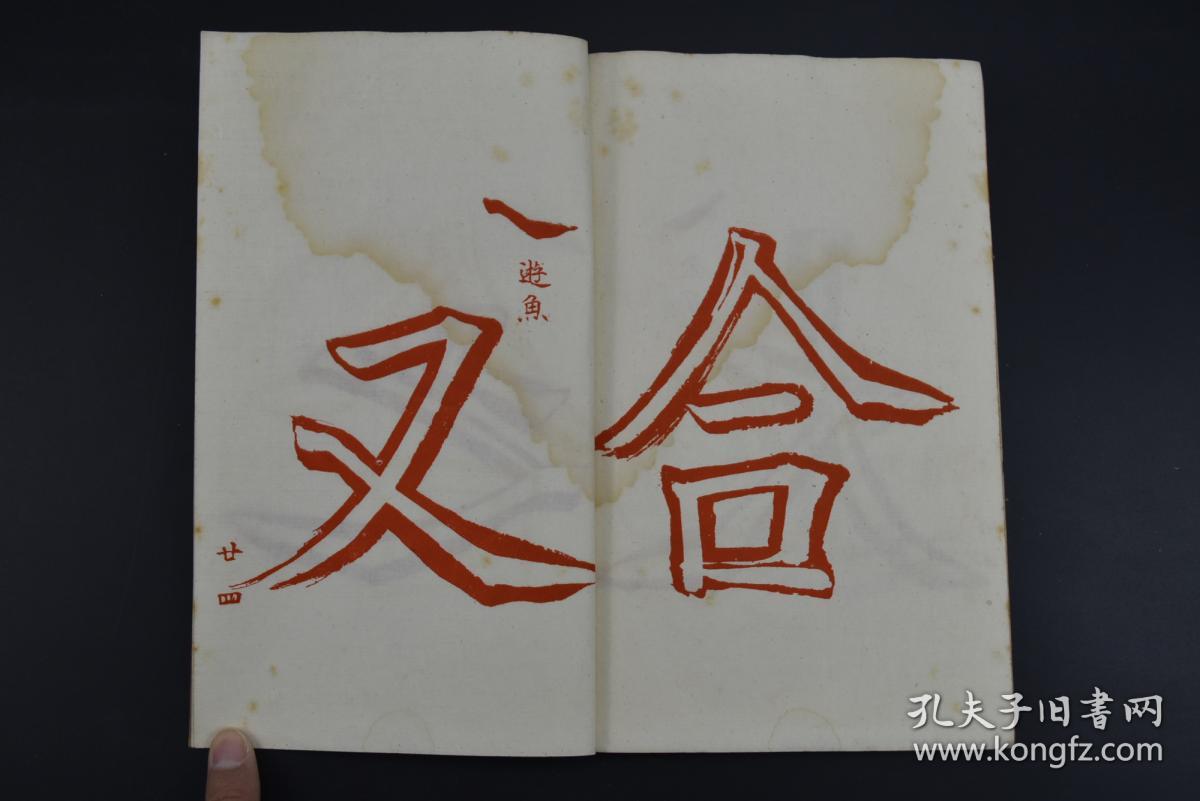 合
遊魚
又
廿四
孔夫子旧書网
www.kongfz.com